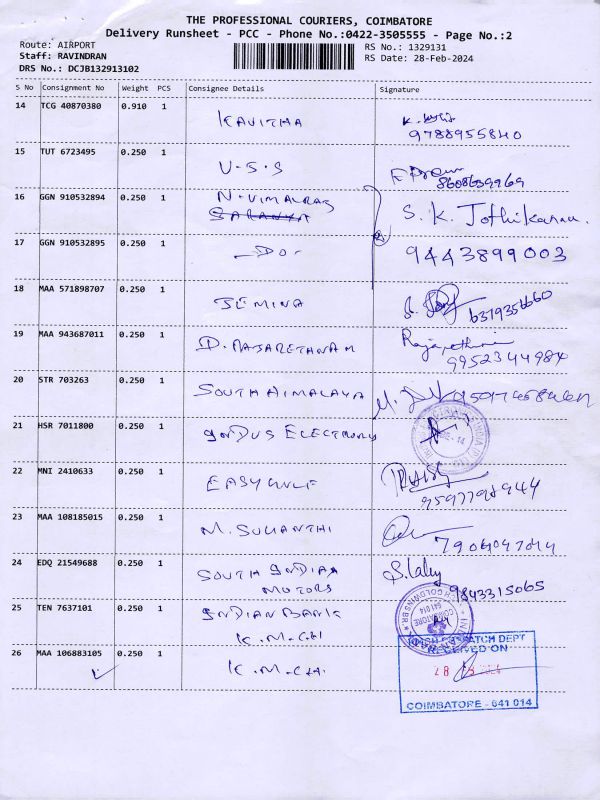 THE PROFESSIONAL COURIERS, COIMBATORE
Delivery Runsheet - PCC - Phone No.:0422-3505555 - Page No.:2
Route: AIRPORT
RS No.: 1329131
Staff: RAVINDRAN
RS Date: 28-Feb-2024
DRS No.: DCJB132913102
S No Consignment No Weight PCS Consignee Details Signature
14 TCG 40870380 0.910 1
KAVITHA
9788955840
15 TUT 6723495 0.250 1
U-S-S
8608659969
16 GGN 910532894 0.250 1
N. VIMALRAJ
SARANYA
S. K. Jothikanau.
17 GGN 910532895 0.250 1
- Do -
9443899003
18 MAA 571898707 0.250 1
JEMINA
6379356660
19 MAA 943687011 0.250 1
D. RAJARETANAM
9952344984
20 STR 703263 0.250 1
SOUTH HIMALAYA
21 HSR 7011800 0.250 1
INDUS ELECTRONY
22 MNI 2410633 0.250 1
EASY GULF
9597798944
23 MAA 108185015 0.250 1
M. SUMANTHI
24 EDQ 21549688 0.250 1
SOUTH INDIAN
MOTORS
9843315065
25 TEN 7637101 0.250 1
INDIAN BANK
K.M.CH
COIMBATORE
641 014
26 MAA 106883105 0.250 1
K.M.CH.
DISPATCH DEPT
RECEIVED ON
COIMBATORE - 641 014